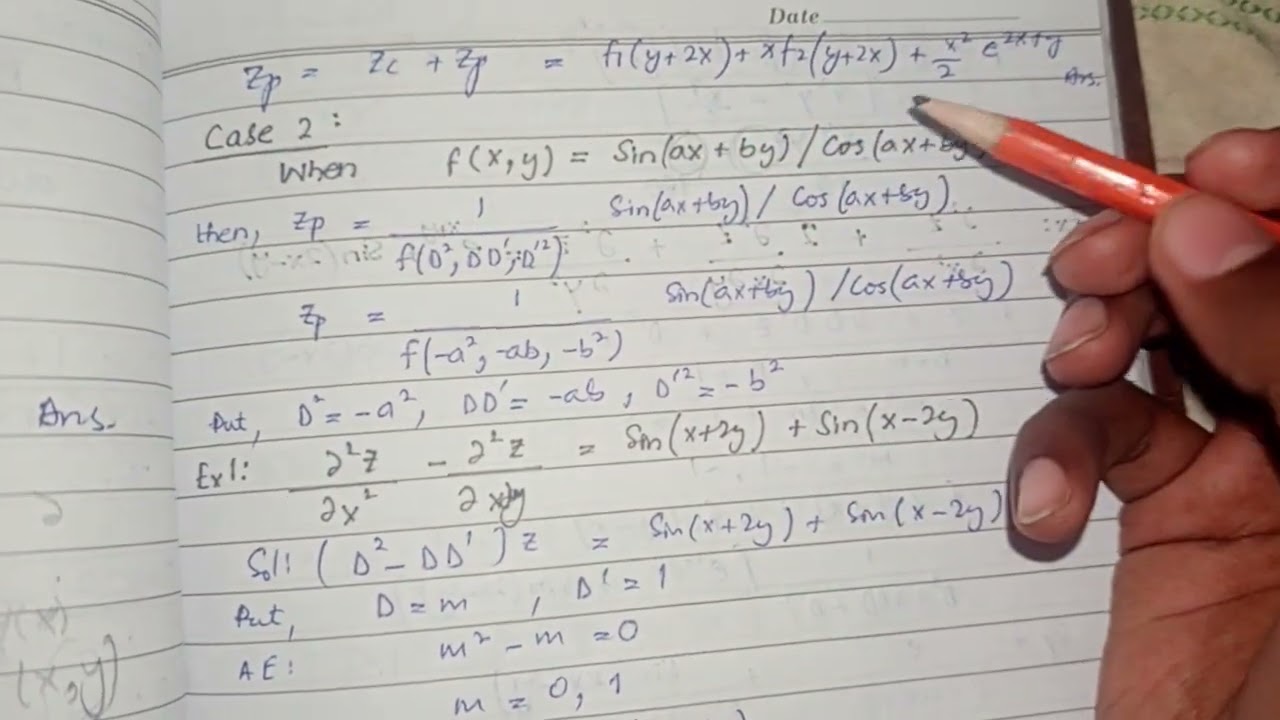 Date
Zp = Zc + Zp = f1(y+2x) + xf2(y+2x) + x²/2 e^2x+y
Ans.
Case 2:
When f(x,y) = Sin(ax+by) / Cos(ax+by
then, Zp = 1/f(D², DD', D'²) Sin(ax+by) / Cos(ax+by).
Zp = 1/f(-a², -ab, -b²) Sin(ax+by) / Cos(ax+by)
Put, D² = -a², DD' = -ab, D'² = -b²
Ans.
Ex1: ∂²z/∂x² - ∂²z/∂x∂y = Sin(x+2y) + Sin(x-2y)
Sol: (D² - DD')z = Sin(x+2y) + Sin(x-2y)
Put, D = m, D' = 1
AE: m² - m = 0
m = 0, 1
(x,y)